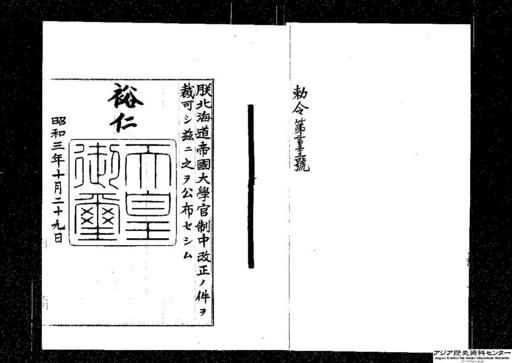 勅令第
號
朕北海道帝國大學官制中改正ノ件ヲ
裁可シ茲ニ之ヲ公布セシム
裕仁
天皇
御璽
昭和三年十月二十九日
アジア歴史資料センター
Japan Center for Asian Historical Records